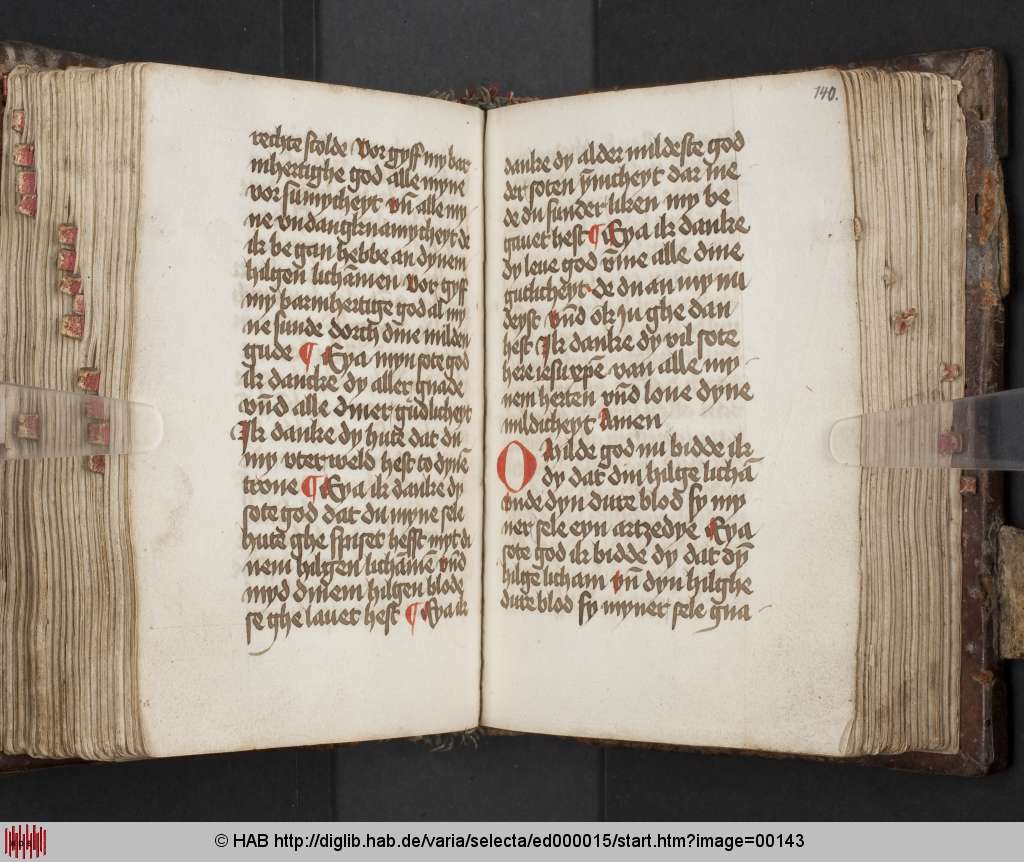 rechte stolde Vor gyff my bar
mhertighe god alle myne
vor sumycheyt vn̄ alle my
ne vndangknamycheyt de
ik be gan hebbe an dynem
hilgen lichāmen Vor gyff
my barmhertige god al my
ne sunde dorch dine milden
gude ¶ Eya myn sote god
ik dancke dy aller gnade
vn̄d alle diner gudlicheyt
Ik danke dy hute dat du
my vterweld hest to dynē
trone ¶ Eya ik danke dy
sote god dat du myne sele
hute ghe spiset hefft myt di
nem hilgen lichāmē vn̄d
myd dinem hilgen blode
se ghe lauet hest ¶ Eya ik
140.
danke dy alder mildeste god
der soten ynnicheyt dar me
de du sunder liken my be
gauet hest ¶ Eya ik danke
dy leue god vm̄e alle dine
gutlicheyt de du an my nu
deyst vn̄d ok ju ghe dan
hest Ik danke dy vil sote
here iesu xp̄e van alle my
nem herten vn̄d loue dyne
mildicheyt Amen
O Milde god nu bidde ik
dy dat din hilge lichā
vnde dyn dure blod sy my
ner sele eyn artzedye Eya
sote god ik bidde dy dat dy̅
hilge licham vn̄ dyn hilghe
dure blod sy myner sele gna
© HAB http://diglib.hab.de/varia/selecta/ed000015/start.htm?image=00143